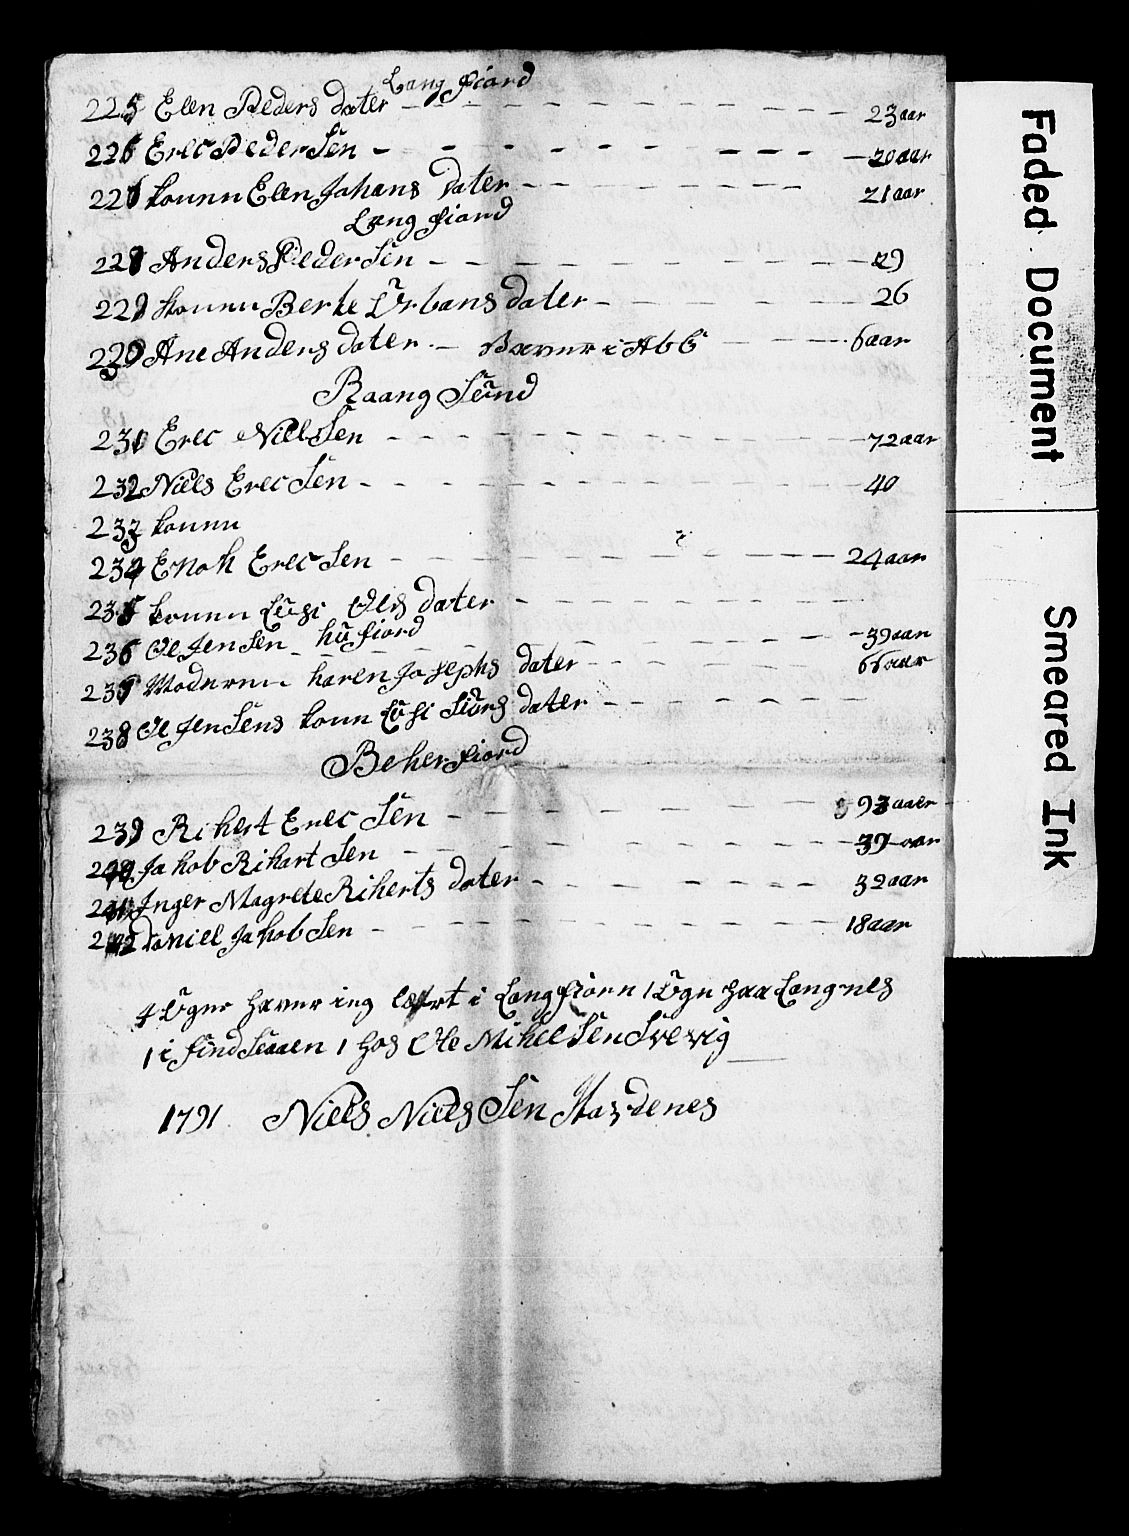 Lang fiord
225 Elen Peders dater - - - - - - - - 23 aar
226 Erec Peder Sen - - - - - - - - 20 aar
227 konnn Elen Johans dater - - - - - - - 21 aar
Lang fiord
228 Anders Peder Sen - - - - - - - - 29
229 konnn Berte Urbans dater - - - - - - 26
230 Ane Anders dater - Baxner i A b b - - - 6 aar
Raang Sund
231 Erec Niels Sen - - - - - - - - 72 aar
232 Niels Erec Sen - - - - - - - - 40
233 konnn
234 Enok Erec Sen - - - - - - - - 24 aar
235 konnn Lusi Oles dater - - - - - - -
236 Ole Jen Sen - hu fiord - - - - - - 39 aar
237 Moderenn karen Josephs dater - - - - - 66 aar
238 Ole Jen Sens konn Lusi Siurs dater - - - - -
Beker fiord
239 Rikert Erec Sen - - - - - - - - 93 aaer
240 Jakob Rikart Sen - - - - - - - - 39 aar
241 Inger Magrete Rikerts dater - - - - - - 32 aar
242 Daniel Jakob Sen - - - - - - - - 18 aar
4 Ugner haver ieg lært i Lang fiorn 1 Ugn paa Langnes
1 i find 1 hos Ole Mikel Sen Svevig
1791 Niels Niels Sen
Faded Document
Smeared Ink